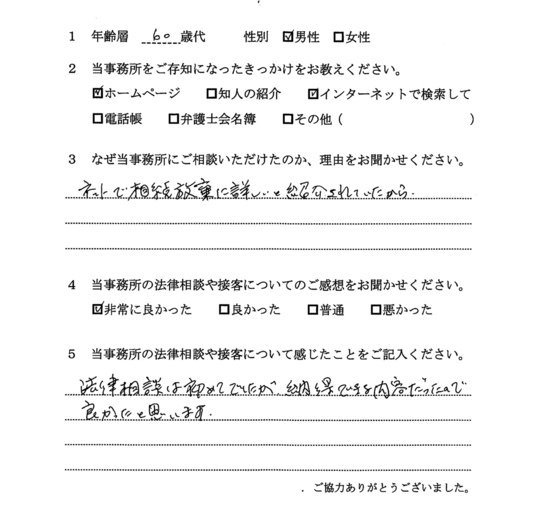 1 年齢層 60歳代 性別 ☑男性 □女性
2 当事務所をご存知になったきっかけをお教えください。
☑ホームページ □知人の紹介 ☑インターネットで検索して
□電話帳 □弁護士会名簿 □その他( )
3 なぜ当事務所にご相談いただけたのか、理由をお聞かせください。
ネットで相続放棄に詳しいと紹介されていたから.
4 当事務所の法律相談や接客についてのご感想をお聞かせください。
☑非常に良かった □良かった □普通 □悪かった
5 当事務所の法律相談や接客について感じたことをご記入ください。
法律相談は初めてでしたが、納得できる内容だったので
良かったと思います.
. ご協力ありがとうございました。